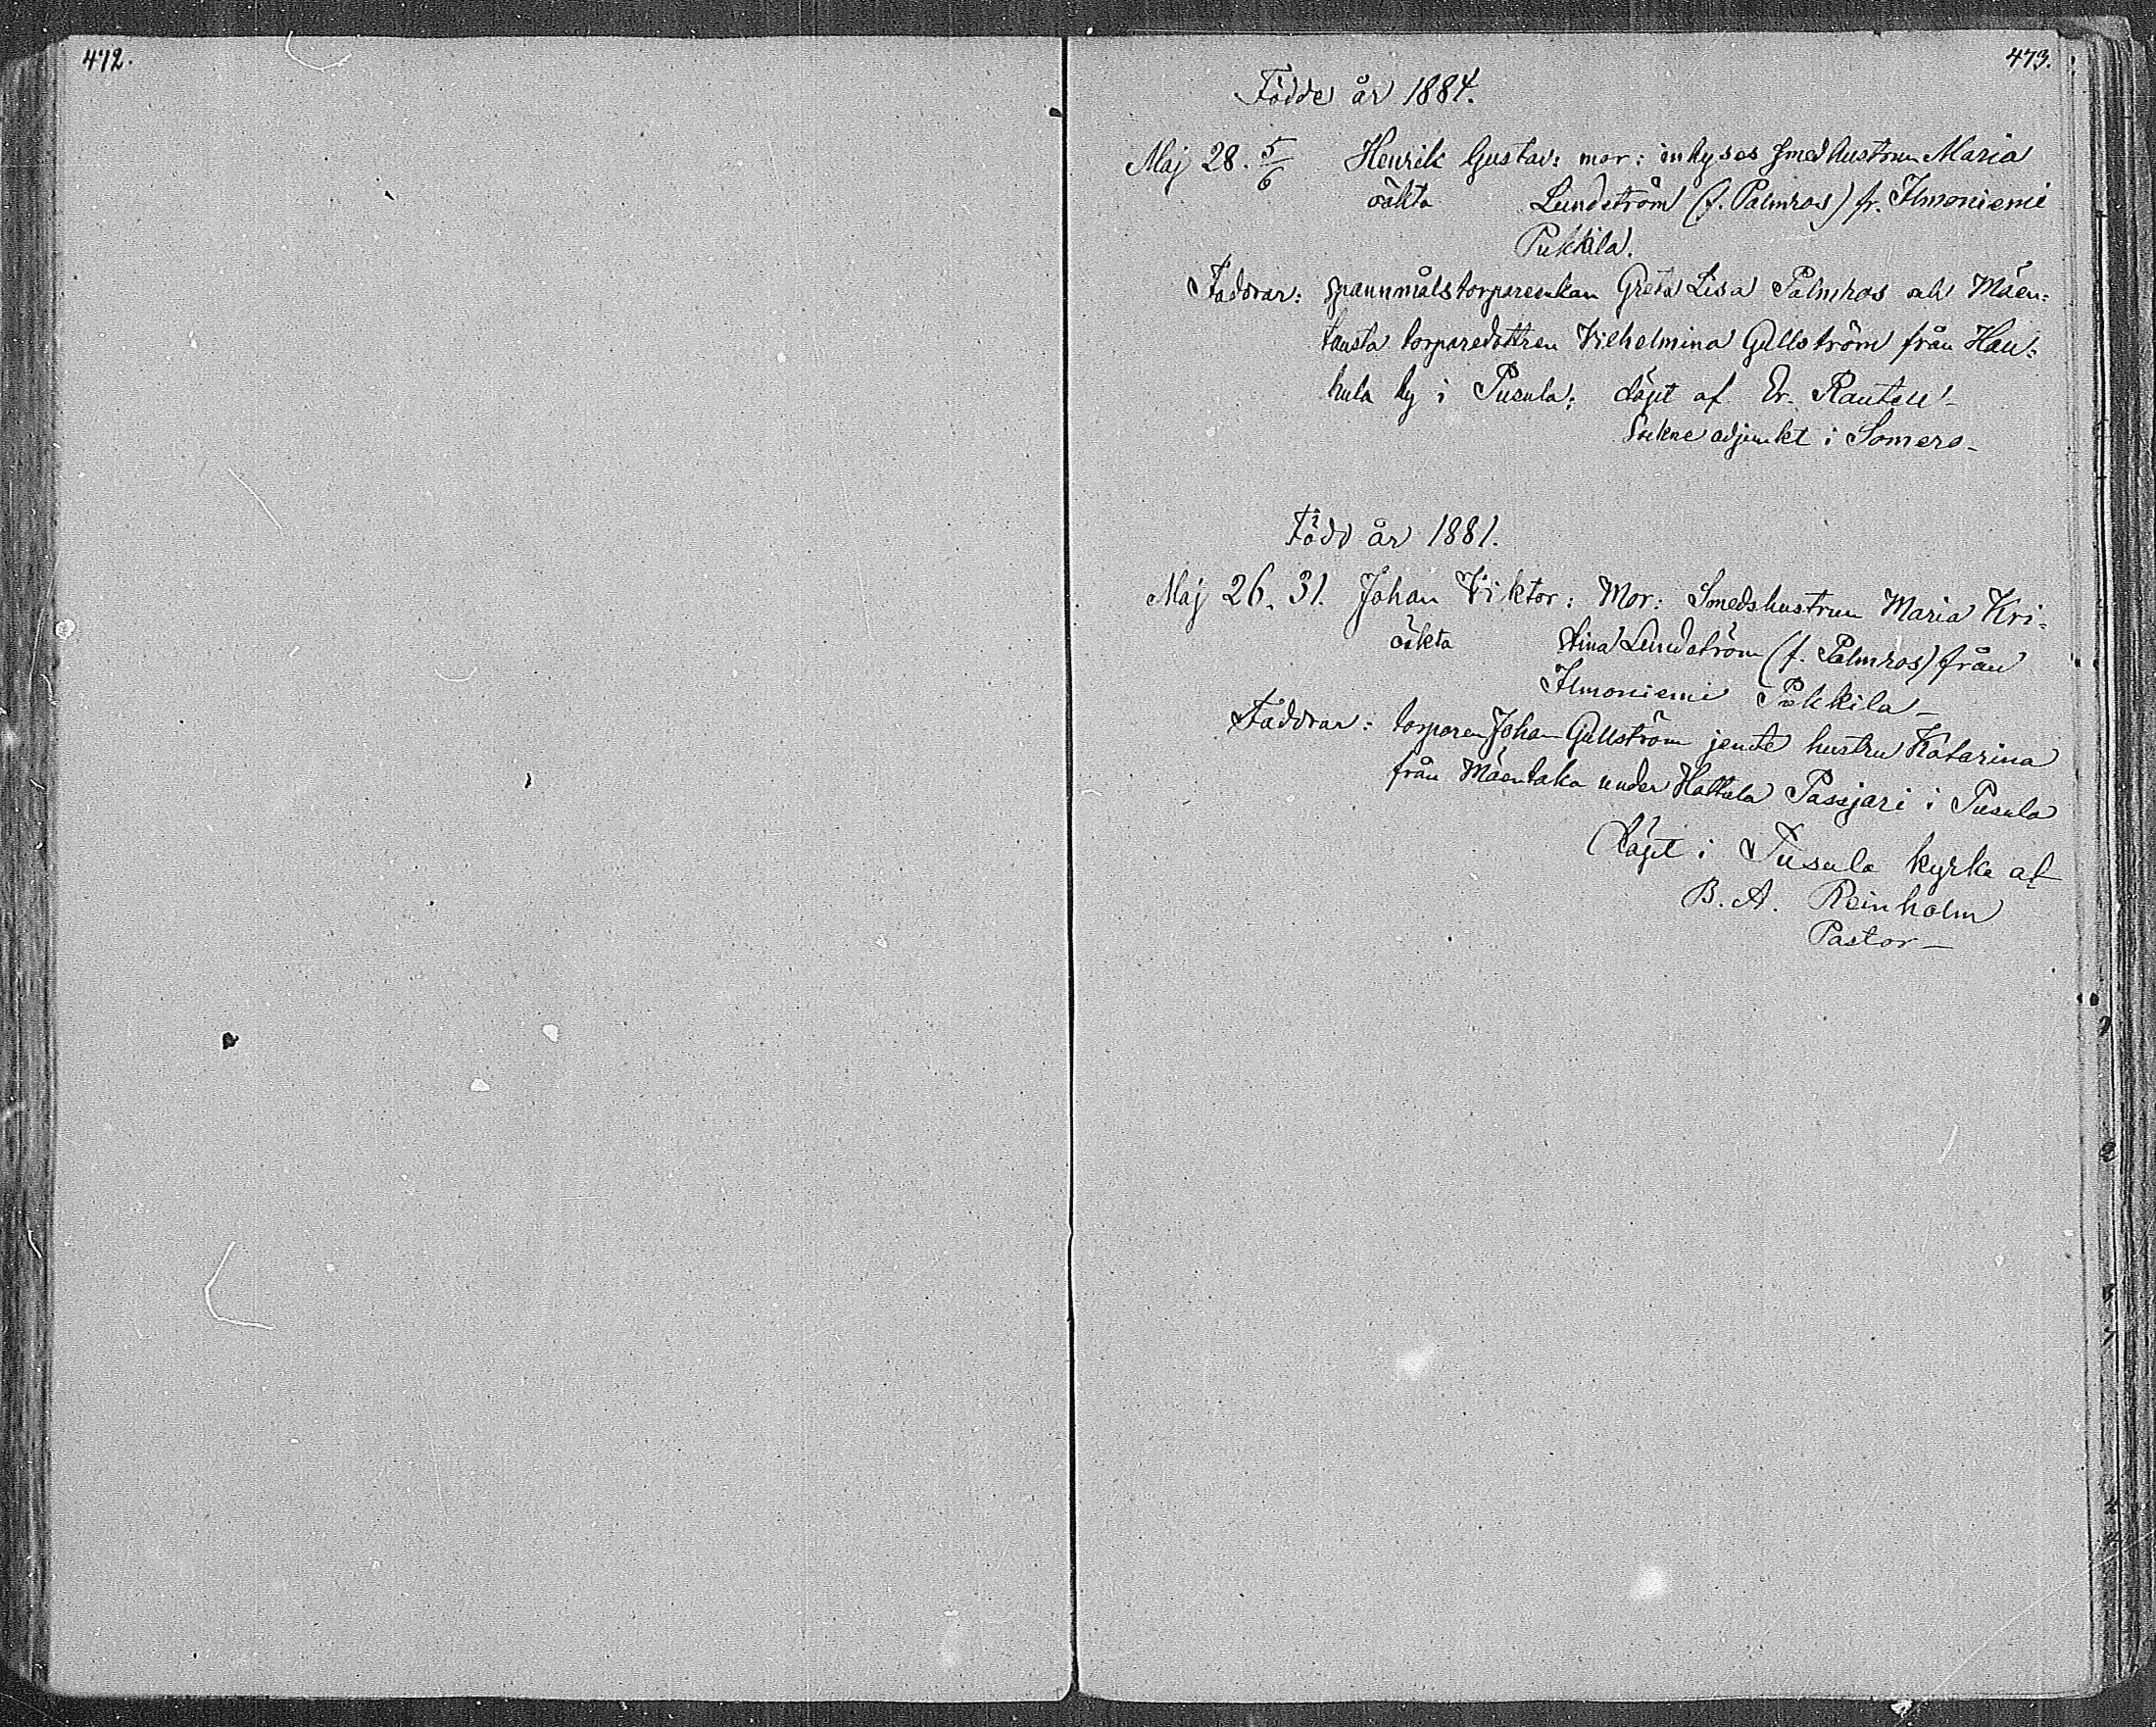 472.
473.
Födde år 1884.
Maj 28. 5/6 Henrik Gustav: mor: inhyses smedhustrun Maria
oäkta Lundström (f. Palmros) fr. Ilmoniemi
Pukkila.
Faddrar: spannmålstorpareenkan Greta Lisa Palmros och Mäen-
tausta torparedottren Vilhelmina Gullström från Hau-
hula by i Pusula; döpt af Vr. Rautell
Sockneadjunkt i Somero
Född år 1881.
Maj 26. 31. Johan Viktor: Mor: Smedshustrun Maria Kri-
oäkta stina Lundström (f. Palmros) från
Ilmoniemi Pukkila
Faddrar: torparen Johan Gullström jemte hustru Katarina
från Mäentaka under Hattula Passjari i Pusula
Döpt i Pusula kyrka af
B. A. Reinholm
Pastor